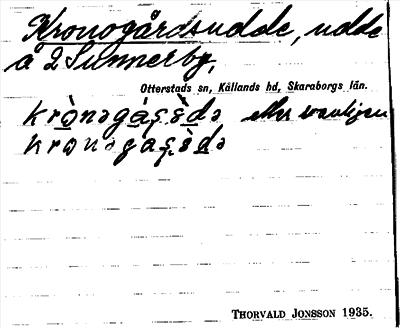 Kronogårdsudde, udde
å 2 Sunnerby,
Otterstads sn, Kållands hd, Skaraborgs län.
eller vanligen
THORVALD JONSSON 1935.